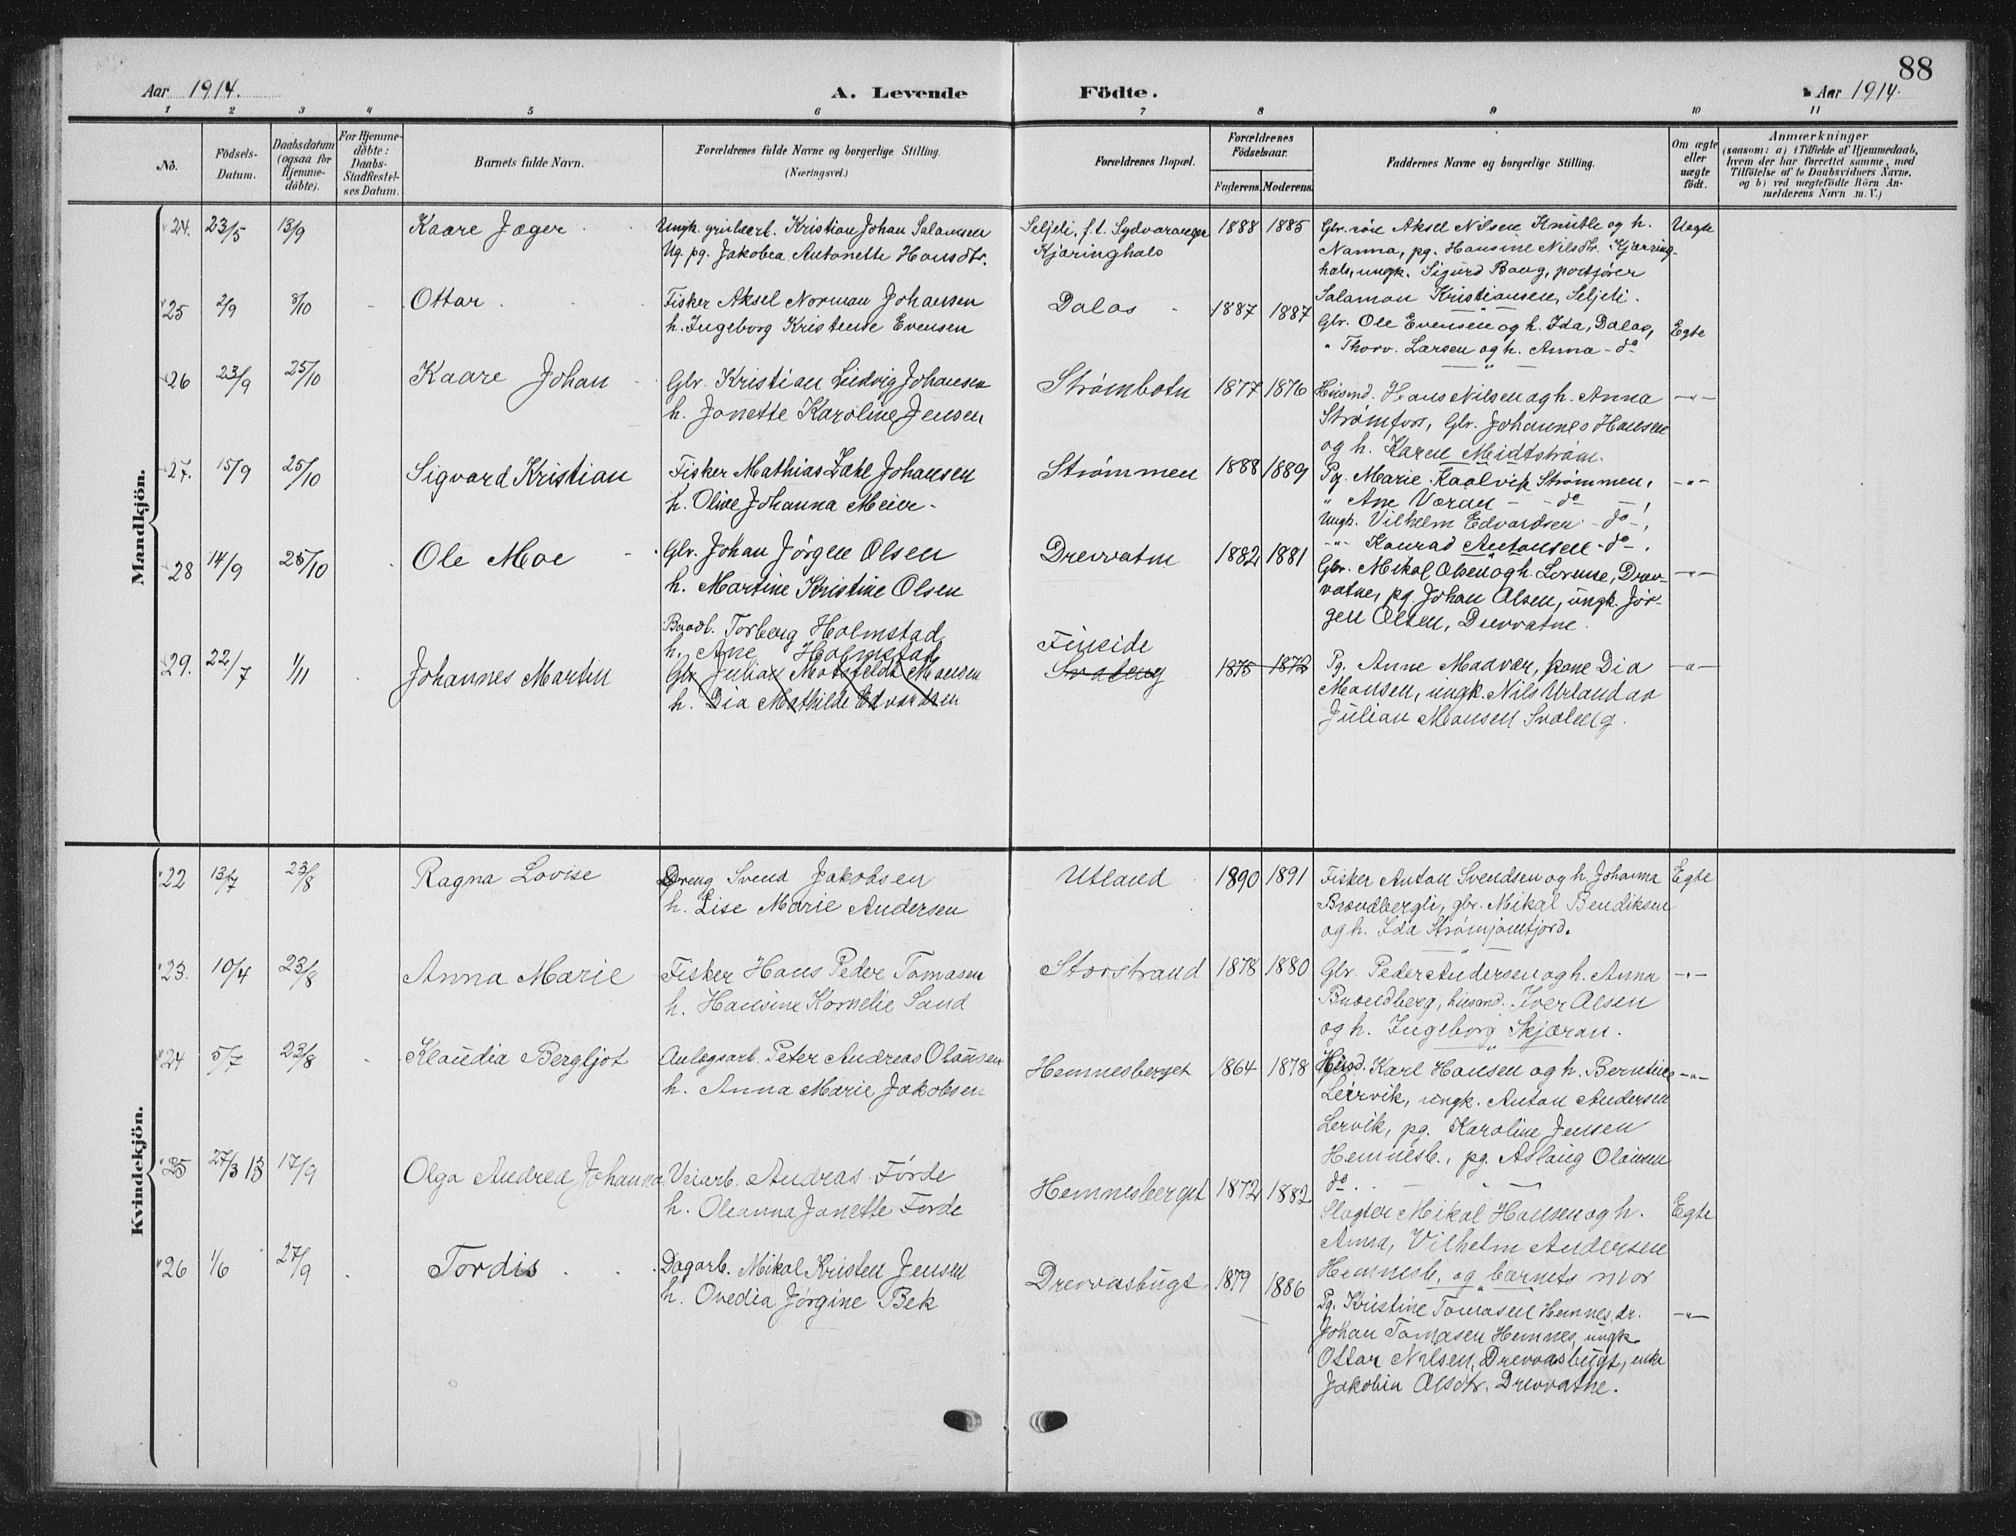 88
Aar 1914.
A. Levende Födte.
Aar 1914.
1 2 3 4 5 6 7 8 9 10 11
No.
Födsels-Datum.
Daabsdatum (ogsaa for Hjemme-döbte).
For Hjemme-döbte: Daabs-Stadfæstel-ses Datum.
Barnets fulde Navn.
Forældrenes fulde Navne og borgerlige Stilling.
(Næringsvei.)
Forældrenes Bopæl.
Forældrenes Födselsaar.
Faderens. Moderens.
Faddernes Navne og borgerlige Stilling.
Om ægte eller uægte födt.
Anmærkninger
(saasom: a) i Tilfælde af Hjemmedaab, hvem der har forrettet samme, med Tilföielse af to Daabsvidners Navne, og b) ved uægtefödte Börn An-melderens Navn m. V.)
Mandkjön.
24. 23/5 13/9 Kaare Jæger
Ungk. grubearb. Kristian Johan Salamsen
Ug. pg. Jakobea Antonette Hansdtr.
Seljeli, f.t. Sydvaranger
Kjæringhals
1888 1885
Gbr. søn Aksel Nilsen Knutli og h.
Nanna, pg. Hansine Nilsdtr. Kjæring-
hals, ungk. Sigurd Baug, portjører
Salamon Kristiansen, Seljeli.
Uegte
25 2/9 3/10 Ottar
Fisker Aksel Norman Johansen
h. Ingeborg Kristine Evensen
Dalos
1887 1887
Gbr. Ole Evensen og h. Ida, Dalos,
" Thorv. Larsen og h. Anna - do
Egte
26 23/9 25/10 Kaare Johan
Gbr. Kristian Ludvig Johansen
h. Janette Karoline Jensen
Strømbotn
1877 1876
Husmd. Hans Nilsen og h. Anna
Strømfors, Gbr. Johannes Hansen
og h. Karen Meidtstrøm.
-"-
27. 15/9 25/10 Sigvard Kristian
Fisker Mathias Zahl Johansen
h. Olive Johanna Meier
Strømmen
1888 1889
Pg. Marie Kaalvik Strømmen,
" Ane Væran - do -
Ungk. Vilhelm Edvardsen - do -,
-"- Konrad Antonsen - do -.
-"-
28 14/9 25/10 Ole Moe
Gbr. Johan Jørgen Olsen
h. Martine Kristine Olsen
Drevvatm
1882 1881
Gbr. Mikal Olsen og h. Lorense, Drev-
vatne, pg. Johan Olsen, ungk. Jør-
gen Olsen, Drevvatne.
-"-
29. 22/7 1/11 Johannes Martin
Baadb. Torberg Holmstad
h. Ane Holmstad
Gbr. Julian Motsfeldt Monsen
h. Dia Mathilde Edvardsen
Fineide
Svaleng
1875 1872
Pg. Anne Maavær, kone Dia
Monsen, ungk. Nils Urland aa
Julian Monsen Svaleng.
-"-
Kvindekjön.
22 13/7 23/8 Ragna Lovise
Dreng Svend Jakobsen
h. Lise Marie Andersen
Utland
1890 1891
Fisker Anton Svendsen og h. Johanna
Brændbergli, gbr. Mikal Bendiksen
og h. Ida Strømjomfjord.
Egte
23. 10/4 23/8 Anna Marie
Fisker Hans Peder Tomasen
h. Hansine Kornelie Sand
Storstrand
1878 1880
Gbr. Peter Andersen og h. Anna
Brændberg, husmd. Iver Olsen
og h. Ingeborg Skjæran.
-"-
24 5/7 23/8 Klaudia Bergljot
Anlægsarb. Peter Andreas Olausen
h. Anna Marie Jakobsen
Hemnesberget
1864 1878
Husmd. Karl Hansen og h. Berntine
Leirvik, ungk. Anton Andersen
Lervik, pg. Karoline Jensen
Hemnesb., pg. Aslaug Olausen
do.
-"-
25 27/3 13 17/9 Olga Andrea Johanna
Veiarb. Andras Førde
h. Oleanna Janette Førde
Hemnesberget
1872 1882
Slagter Mikal Hansen og h.
Anna, Vilhelm Andersen
Hemnesb, og barnets mor
Egte
26 1/6 27/9 Tordis
Dagarb. Mikal Kristen Jensen
h. Ovedia Jørgine Bek
Drevvasbugt
1879 1886
Pg. Kristine Tomasen Hemnes, dr.
Johan Tomasen Hemnes, ungk
Ottar Nilsen, Drevvasbugt, enke
Jakobia Olsdtr. Drevvatne.
-"-